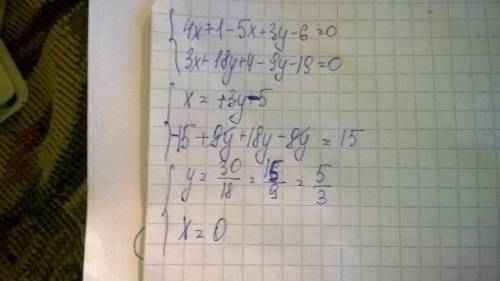 4x+1-5x+3y-6=0
3x+18y+4-9y-19=0
x=+3y-5
-15+9y+18y-9y=15
y=30/18=15/9=5/3
x=0